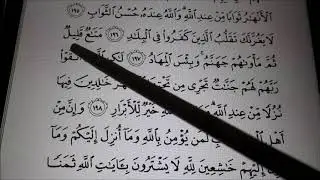 ٱلۡأَنۡهَٰرُ ثَوَابٗا مِّنۡ عِندِ ٱللَّهِۚ وَٱللَّهُ عِندَهُۥ حُسۡنُ ٱلثَّوَابِ ١٩٥
لَا يَغُرَّنَّكَ تَقَلُّبُ ٱلَّذِينَ كَفَرُواْ فِي ٱلۡبِلَٰدِ ١٩٦ مَتَٰعٞ قَلِيلٞ
ثُمَّ مَأۡوَىٰهُمۡ جَهَنَّمُۖ وَبِئۡسَ ٱلۡمِهَادُ ١٩٧ لَٰكِنِ ٱتَّقَوۡاْ
رَبَّهُمۡ لَهُمۡ جَنَّٰتٞ تَجۡرِي مِن تَحۡتِهَا خَٰلِدِينَ فِيهَا
نُزُلٗا مِّنۡ عِندِ ٱللَّهِ خَيۡرٞ لِّلۡأَبۡرَارِ ١٩٨ وَإِنَّ مِنۡ
أَهۡلِ لَمَن يُؤۡمِنُ بِٱللَّهِ وَمَآ أُنزِلَ إِلَيۡكُمۡ وَمَآ
إِلَيۡهِمۡ خَٰشِعِينَ لِلَّهِ لَا يَشۡتَرُونَ بِـَٔايَٰتِ ٱللَّهِ ثَمَنٗا